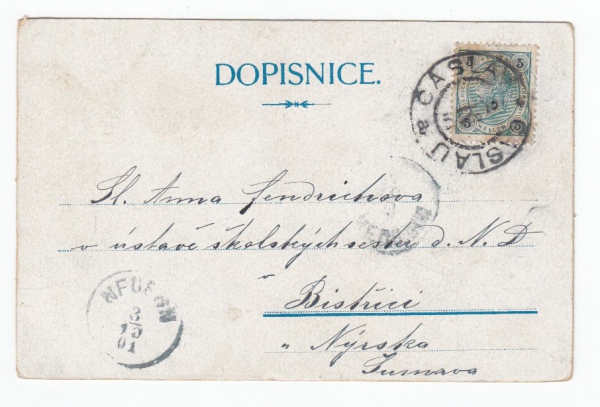 DOPISNICE.
5 5
ČÁSLAV
ČASLAU
Sl. Anna Jendrichova
v ústavě školských sester d. N. D
Bistřici
u Nýrska
Šumava
NEUERN
3
15
01